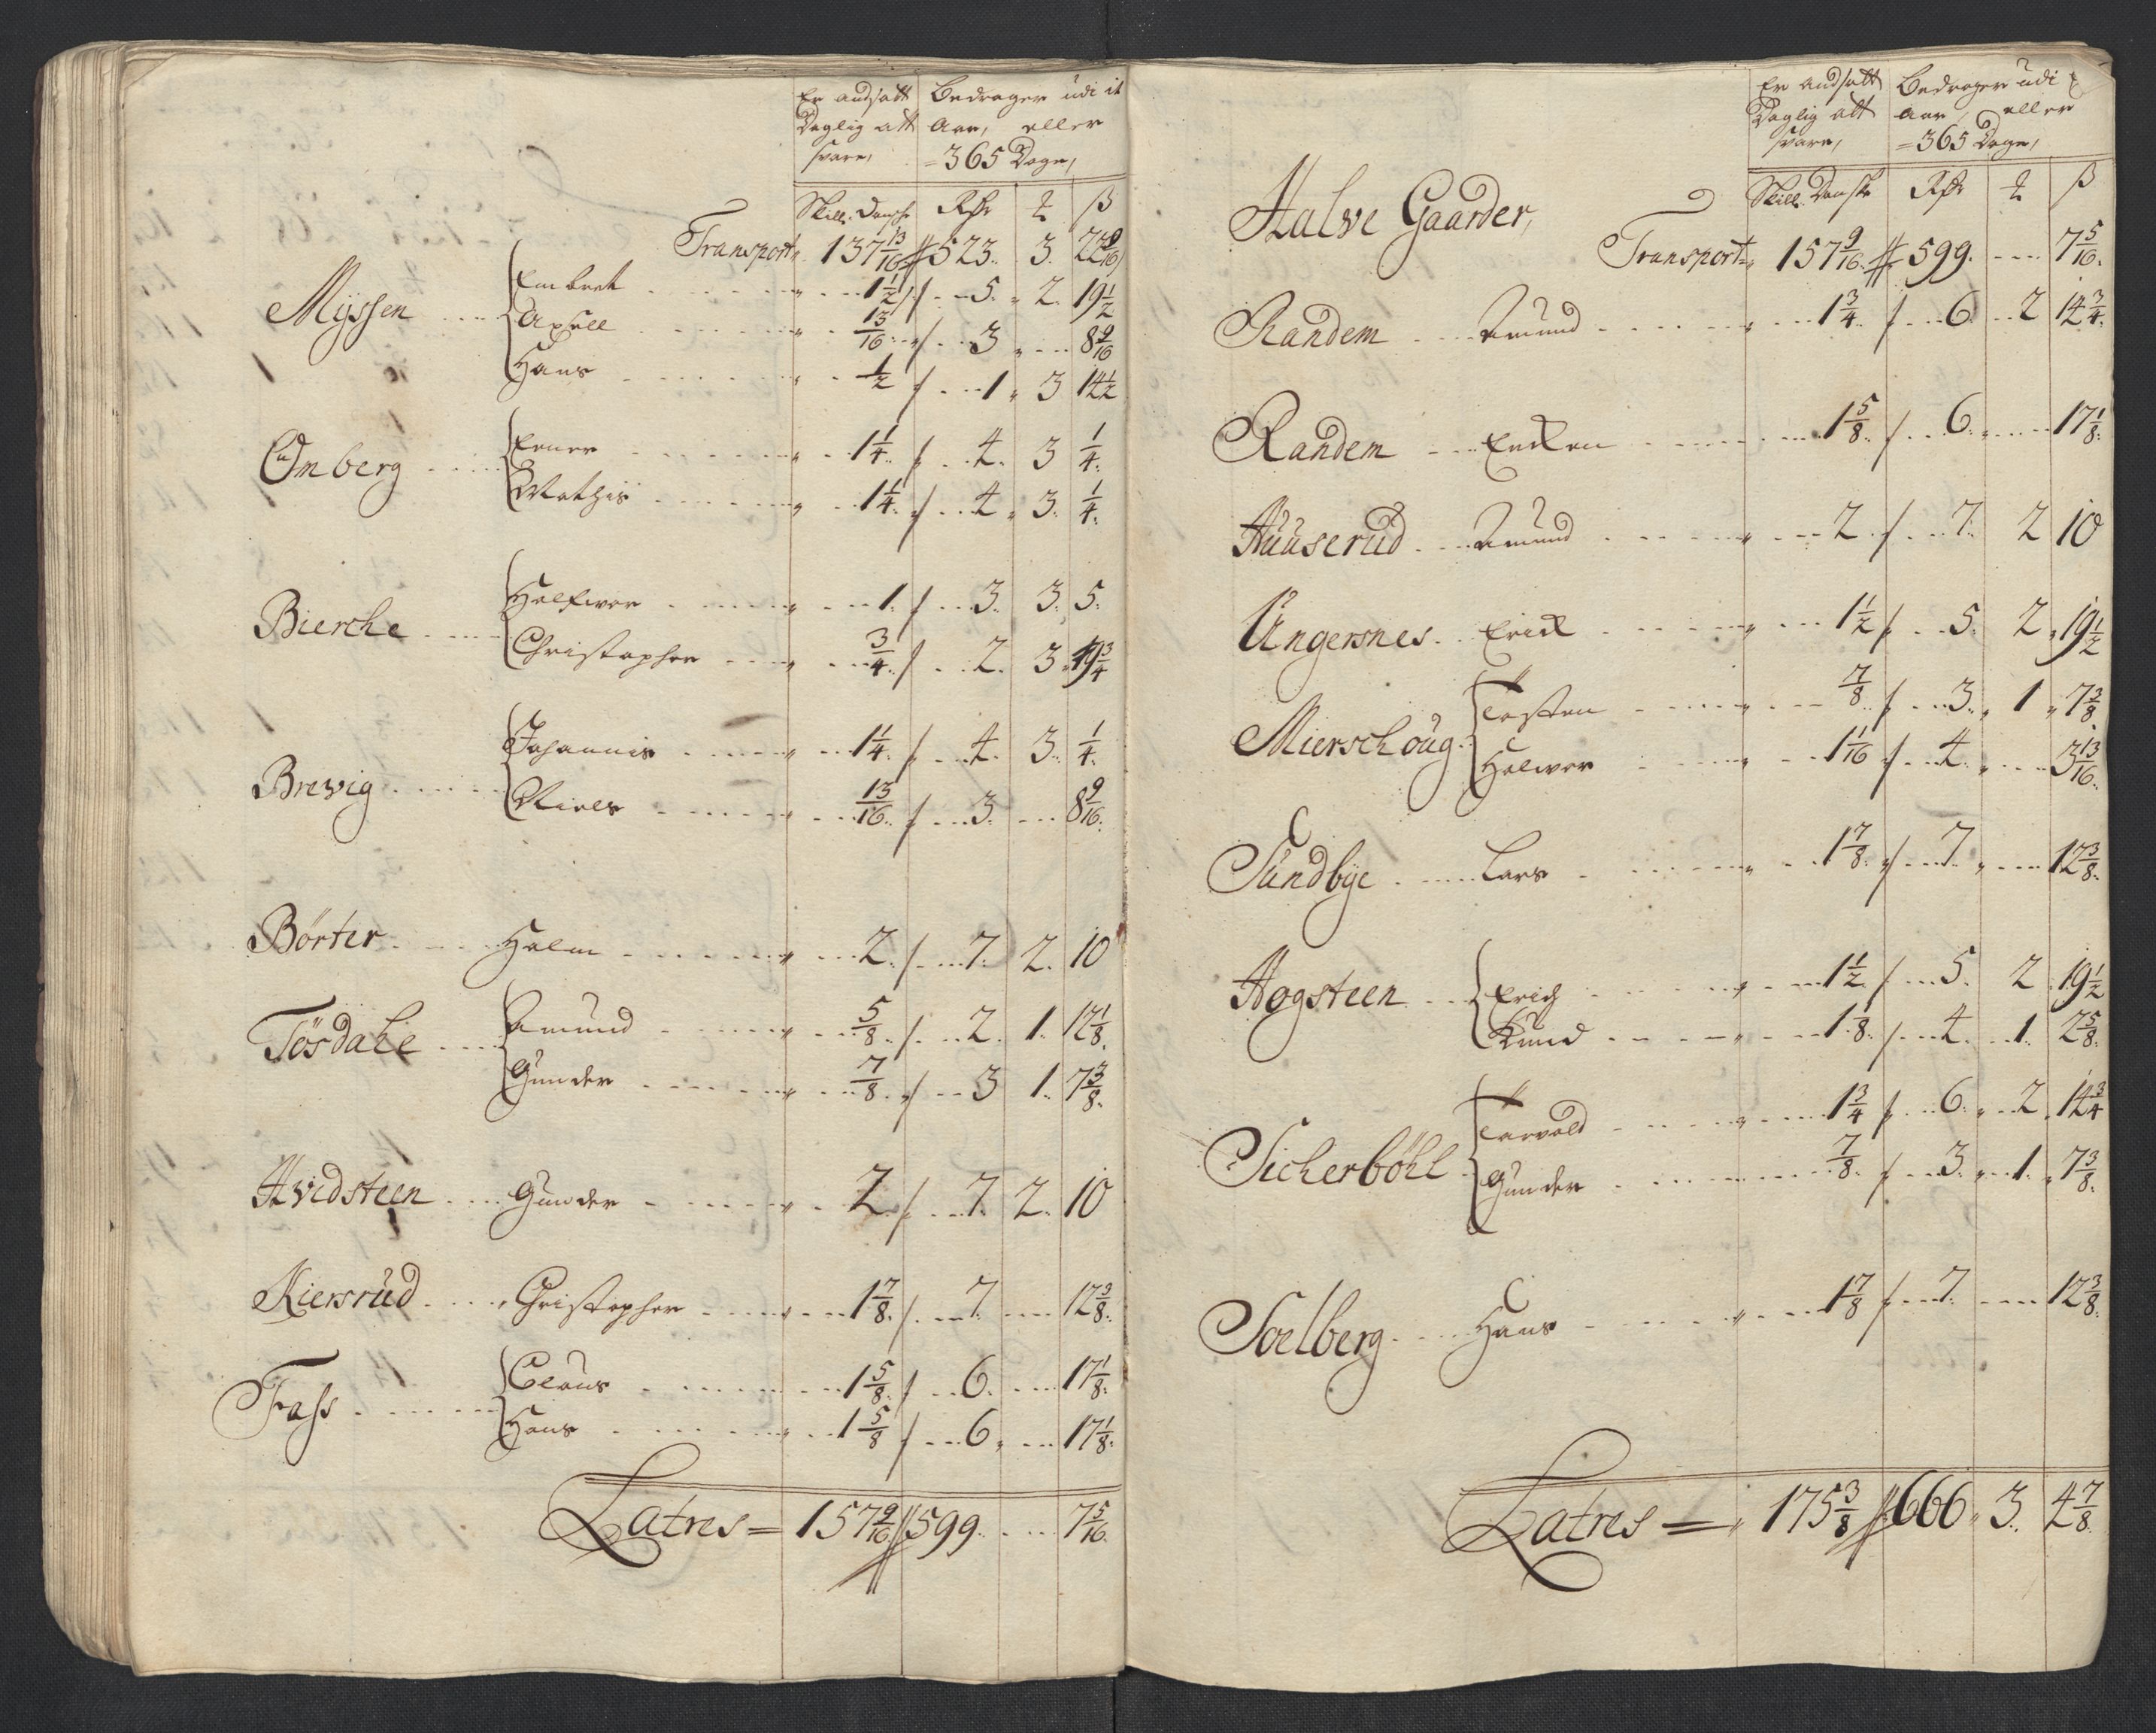 Er andsatt Bedrager udi it
Daglig att Aar, eller
svare, =365 Dage,
Skill. Danske Rdr ₰ β
Transport 137 13/16 523. 3. 22 9/16
Myssen Embret 1 1/2 5. 2. 19 1/2
Axsell 13/16 3 8 9/16
Hans 1/2 1 3 14 1/2
Omberg Ener 1 1/4 4. 3 1/4
Mathis 1 1/4 4 3. 1/4
Bierche Halfwor 1. 3. 3. 5.
Christopher 3/4 2. 3 19 3/4
Brevig Johannis 1 1/4 4. 3. 1/4
Niels 13/16 3. 8 9/16
Börter Halm 2. 7. 2. 10
Tösdahl Amund 5/8 2. 1. 12 1/8
Gunder 7/8 3 1. 7 3/8
Hvidsteen Gunder 2. 7. 2. 10
Kiersrud Christopher 1 7/8 7. 12 3/8
Fass Claus 1 5/8 6. 17 1/8
Hans 1 5/8 6. 17 1/8
Latres = 157 9/16 599. 7 5/16
Er andsatt Bedrager udi
Daglig att Aar, eller
svare, =365 Dage,
Halve Gaarder, Skill. Danske Rdr ₰ β
Transport 157 9/16 599. 7 5/16
Randem Amund 1 3/4 6. 2 14 3/4
Randem Encken 1 5/8 6. 17 1/8
Huuserud Amund 2. 7. 2 10
Ungersnes Erick 1 1/2 5. 2 19 1/2
Mierschoug Tosten 7/8 3. 1 7 3/8
Halwor 1 1/16 4. 3 13/16
Sundbye Lars 1 7/8 7. 12 3/8
Hogsteen Erich 1 1/2 5. 2 19 1/2
Knud 1 1/8 4. 1. 2 5/8
Sicherböhl Torvald 1 3/4 6. 2. 14 3/4
Gunder 7/8 3. 1. 7 3/8
Soelberg Hans 1 7/8 7. 12 3/8
Latres = 175 3/8 666. 3. 4 7/8